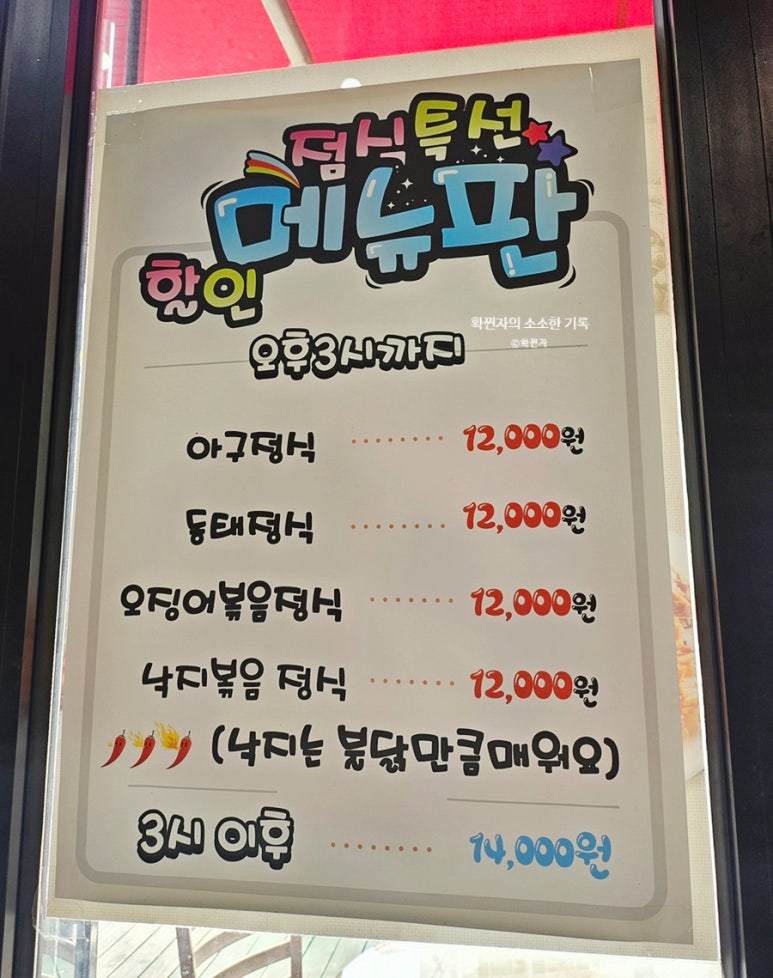 점심특선
메뉴판
할인
확찐자의 소소한 기록
©확찐자
오후3시까지
아구정식 12,000원
동태정식 12,000원
오징어볶음정식 12,000원
낙지볶음 정식 12,000원
(낙지는 불닭만큼매워요)
3시 이후 14,000원